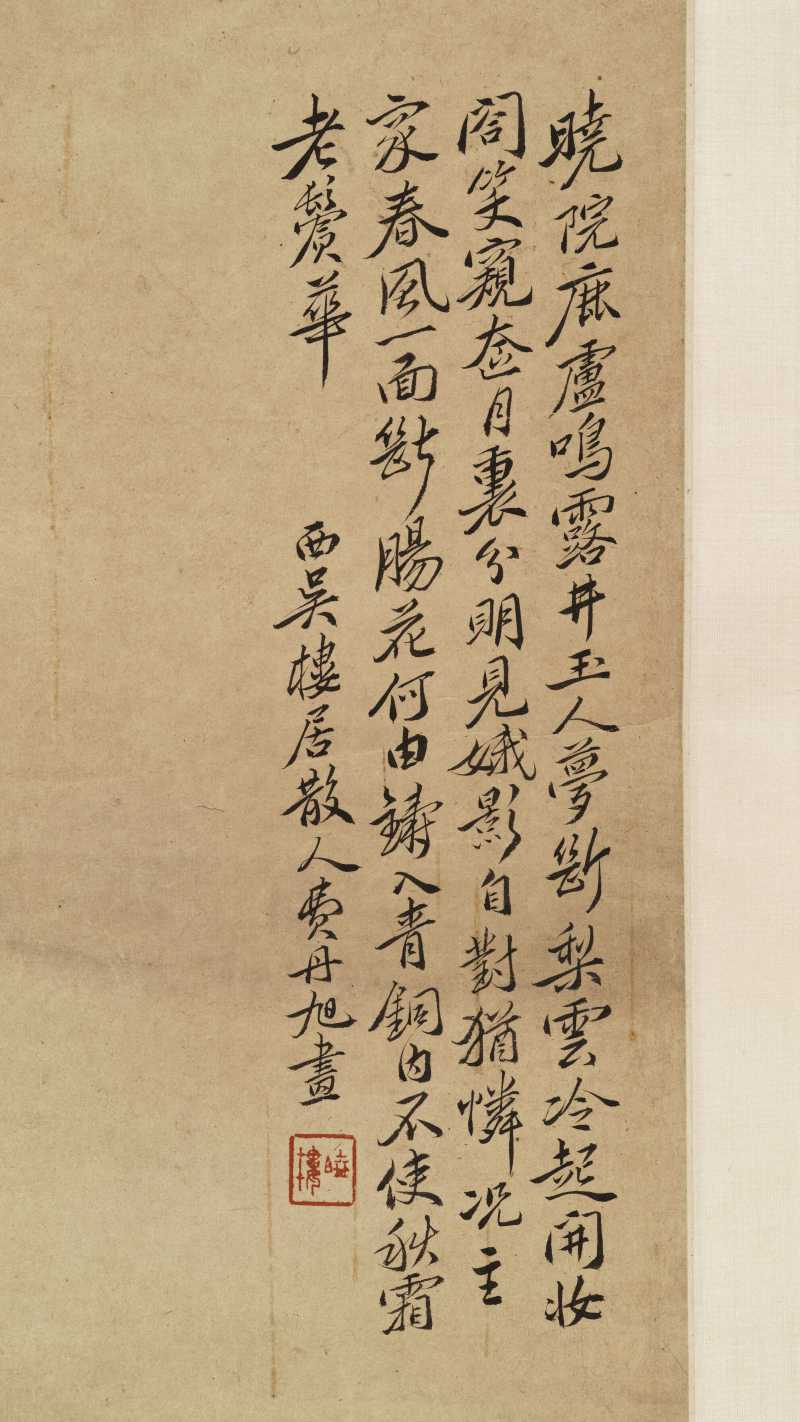 曉院鹿盧鳴露井玉人夢斷梨雲冷起開妝
閤笑窺奩月裏分明見娥影自對猶憐况主
家春風一面斷腸花何由鑄入青銅内不使秋霜
老鬢華
西吳樓居散人費丹旭畫
曉樓